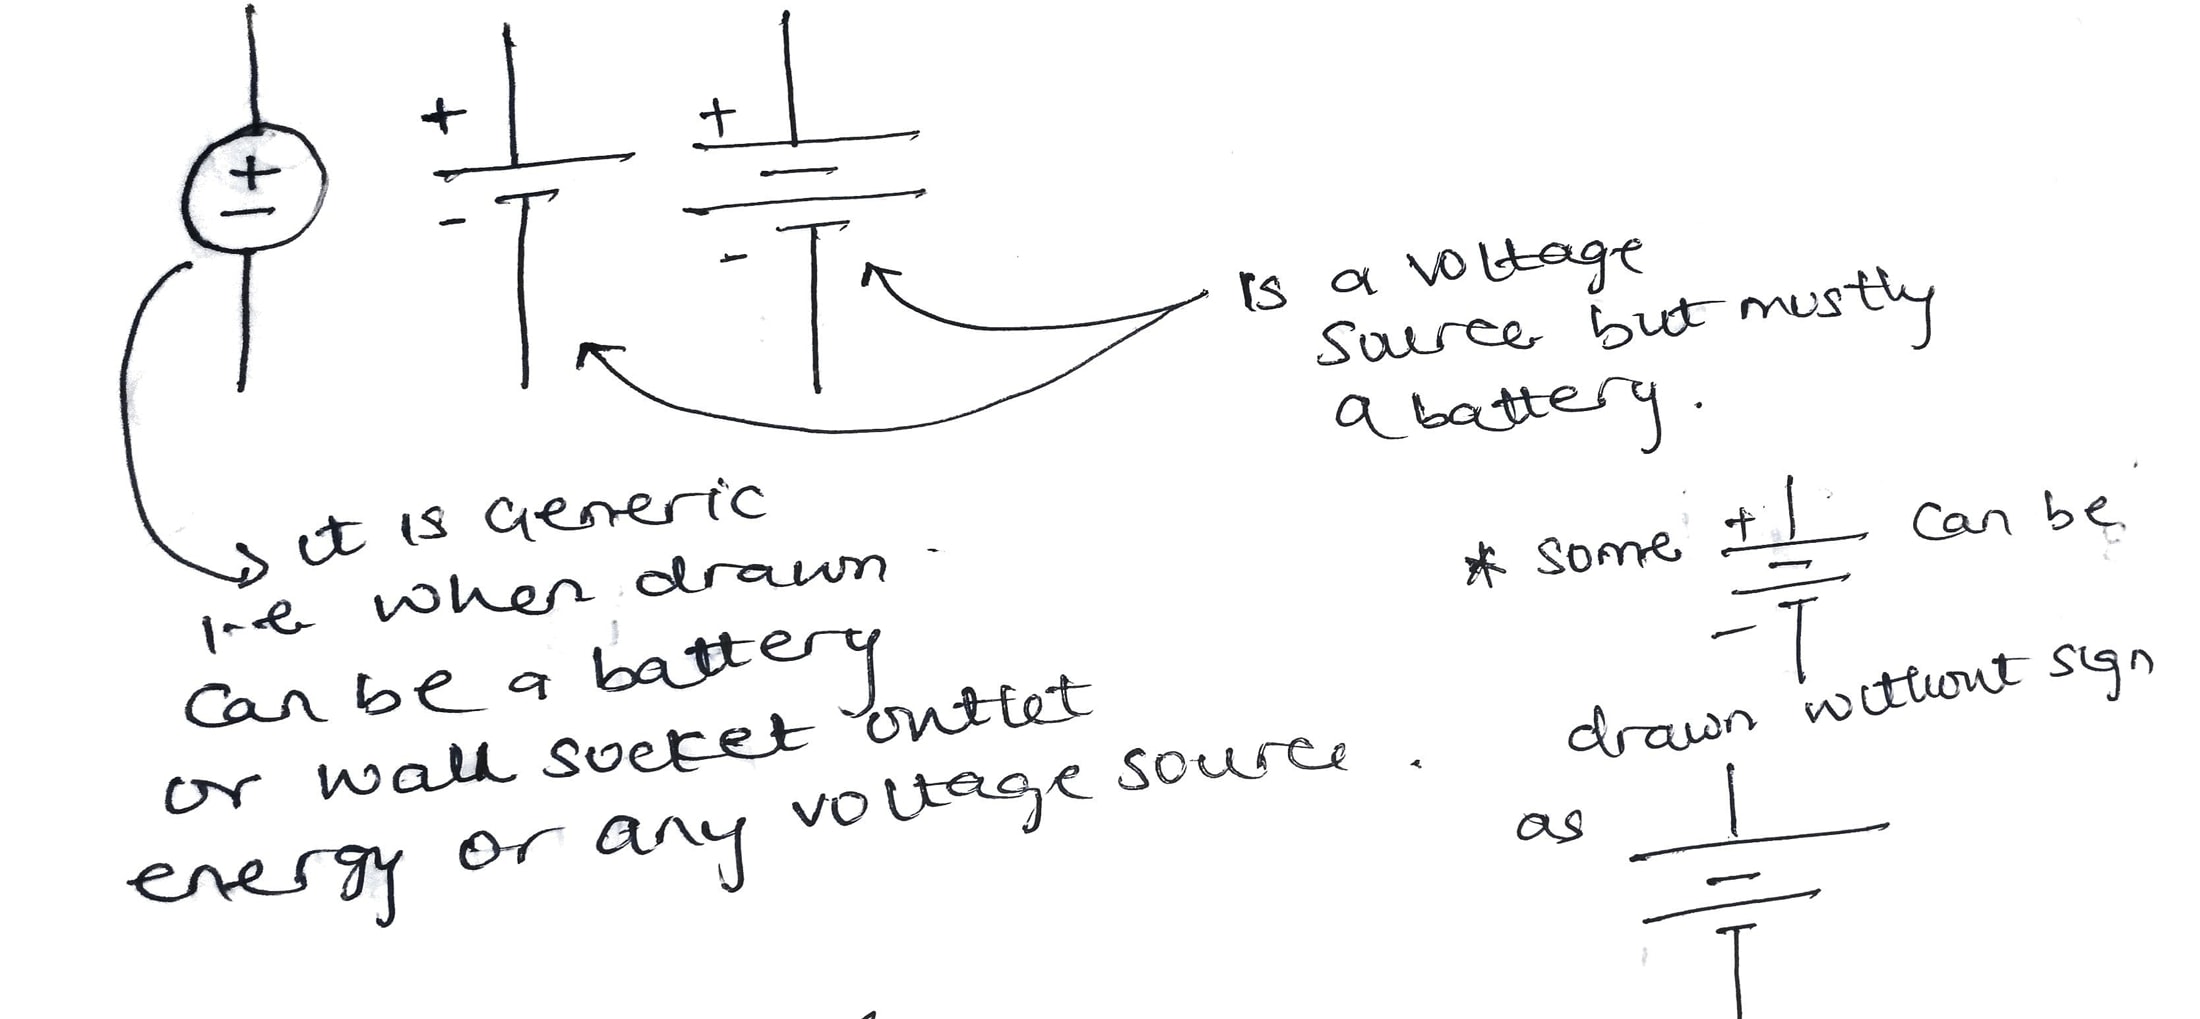 +
-
+
-
+
-
is a voltage
source but mostly
a battery.
it is generic
i-e when drawn
can be a battery
or wall socket outlet
energy or any voltage source.
* some + - can be
drawn without sign
as